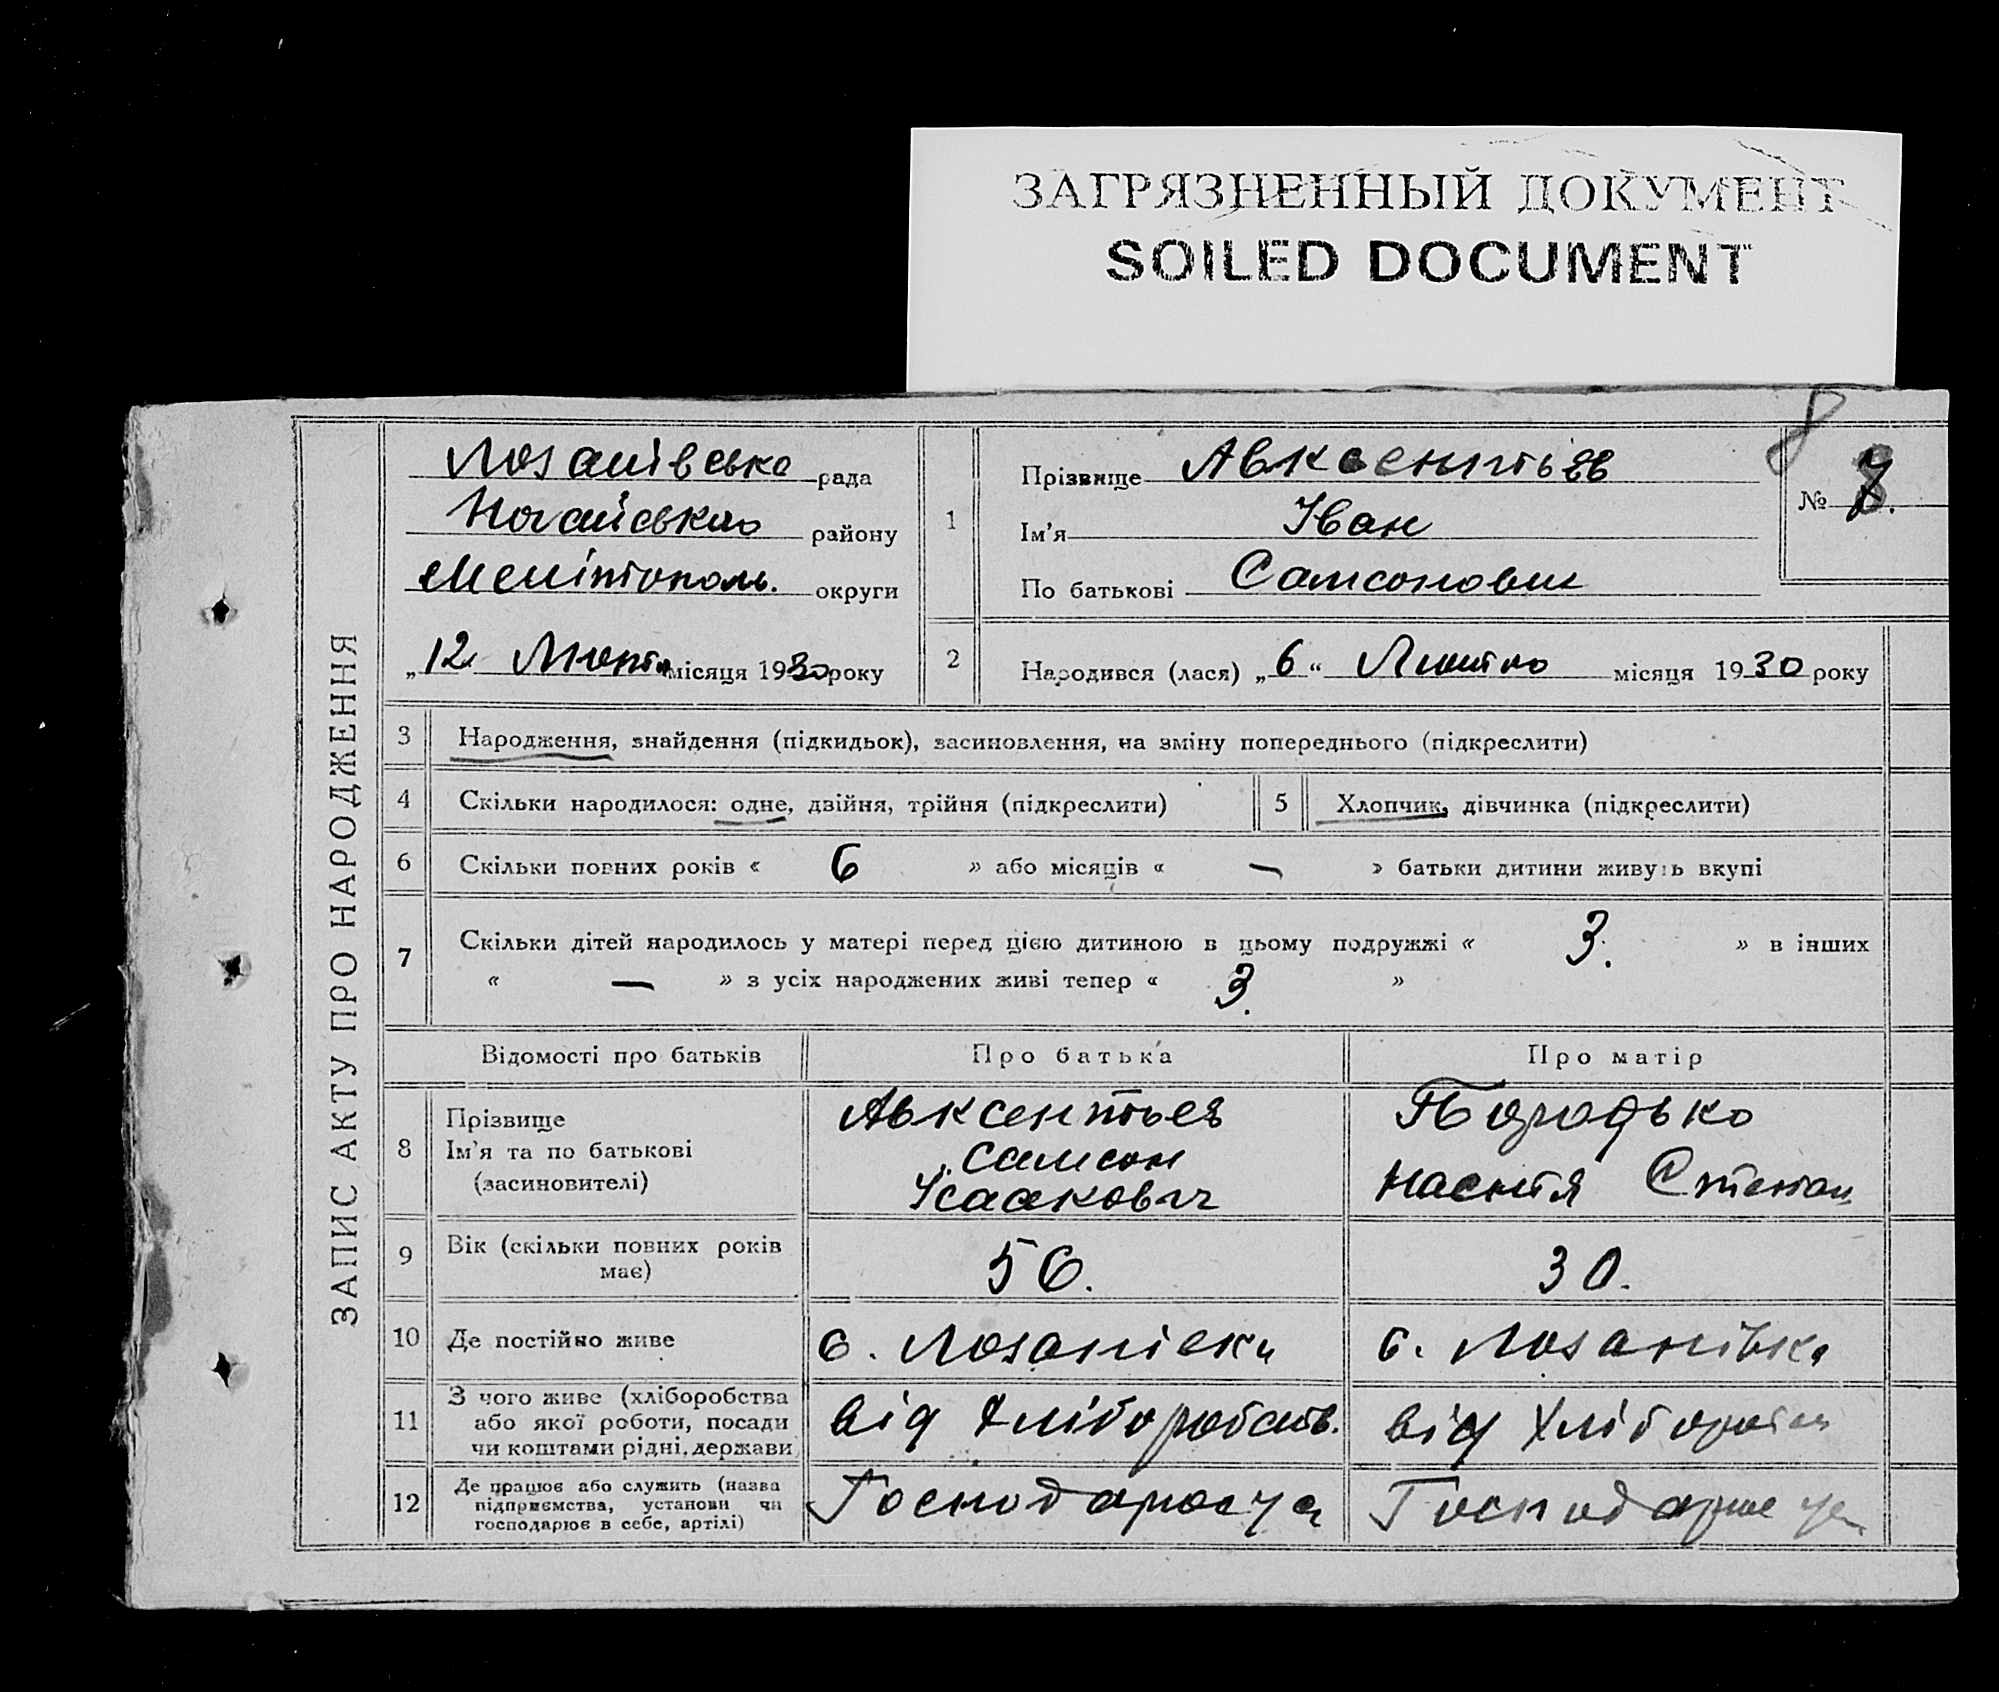 ЗАГРЯЗНЕННЫЙ ДОКУМЕНТ
SOILED DOCUMENT
8
ЗАПИС АКТУ ПРО НАРОДЖЕННЯ
Лозанівська рада
Ногайського району
Мелітополь. округи
„12 місяця 1930 року
1
Прізвище Авксентьєв
Ім'я Іван
По батькові Самсонович
№ 7.
2 Народився (лася) „6“ Лютого місяця 1930 року
3 Народження, знайдення (підкидьок), засиновлення, на зміну попереднього (підкреслити)
4 Скільки народилося: одне, двійня, трійня (підкреслити)
5 Хлопчик, дівчинка (підкреслити)
6 Скільки повних років « 6 » або місяців « — » батьки дитини живуть вкупі
7 Скільки дітей народилось у матері перед цією дитиною в цьому подружжі « 3. » в інших
« — » з усіх народжених живі тепер « 3. »
Відомості про батьків Про батька Про матір
8 Прізвище
Ім'я та по батькові
(засиновителі)
Авксентьев
Самсон
Ісаакович
Настя Степан
9 Вік (скільки повних років
має)
56.
30.
10 Де постійно живе
с. Лозанівка
с. Лозанівка
11 З чого живе (хліборобства
або якої роботи, посади
чи коштами рідні, держави
від Хліборобств.
від
12 Де працює або служить (назва
підприємства, установи чи
господарює в себе, артілі)